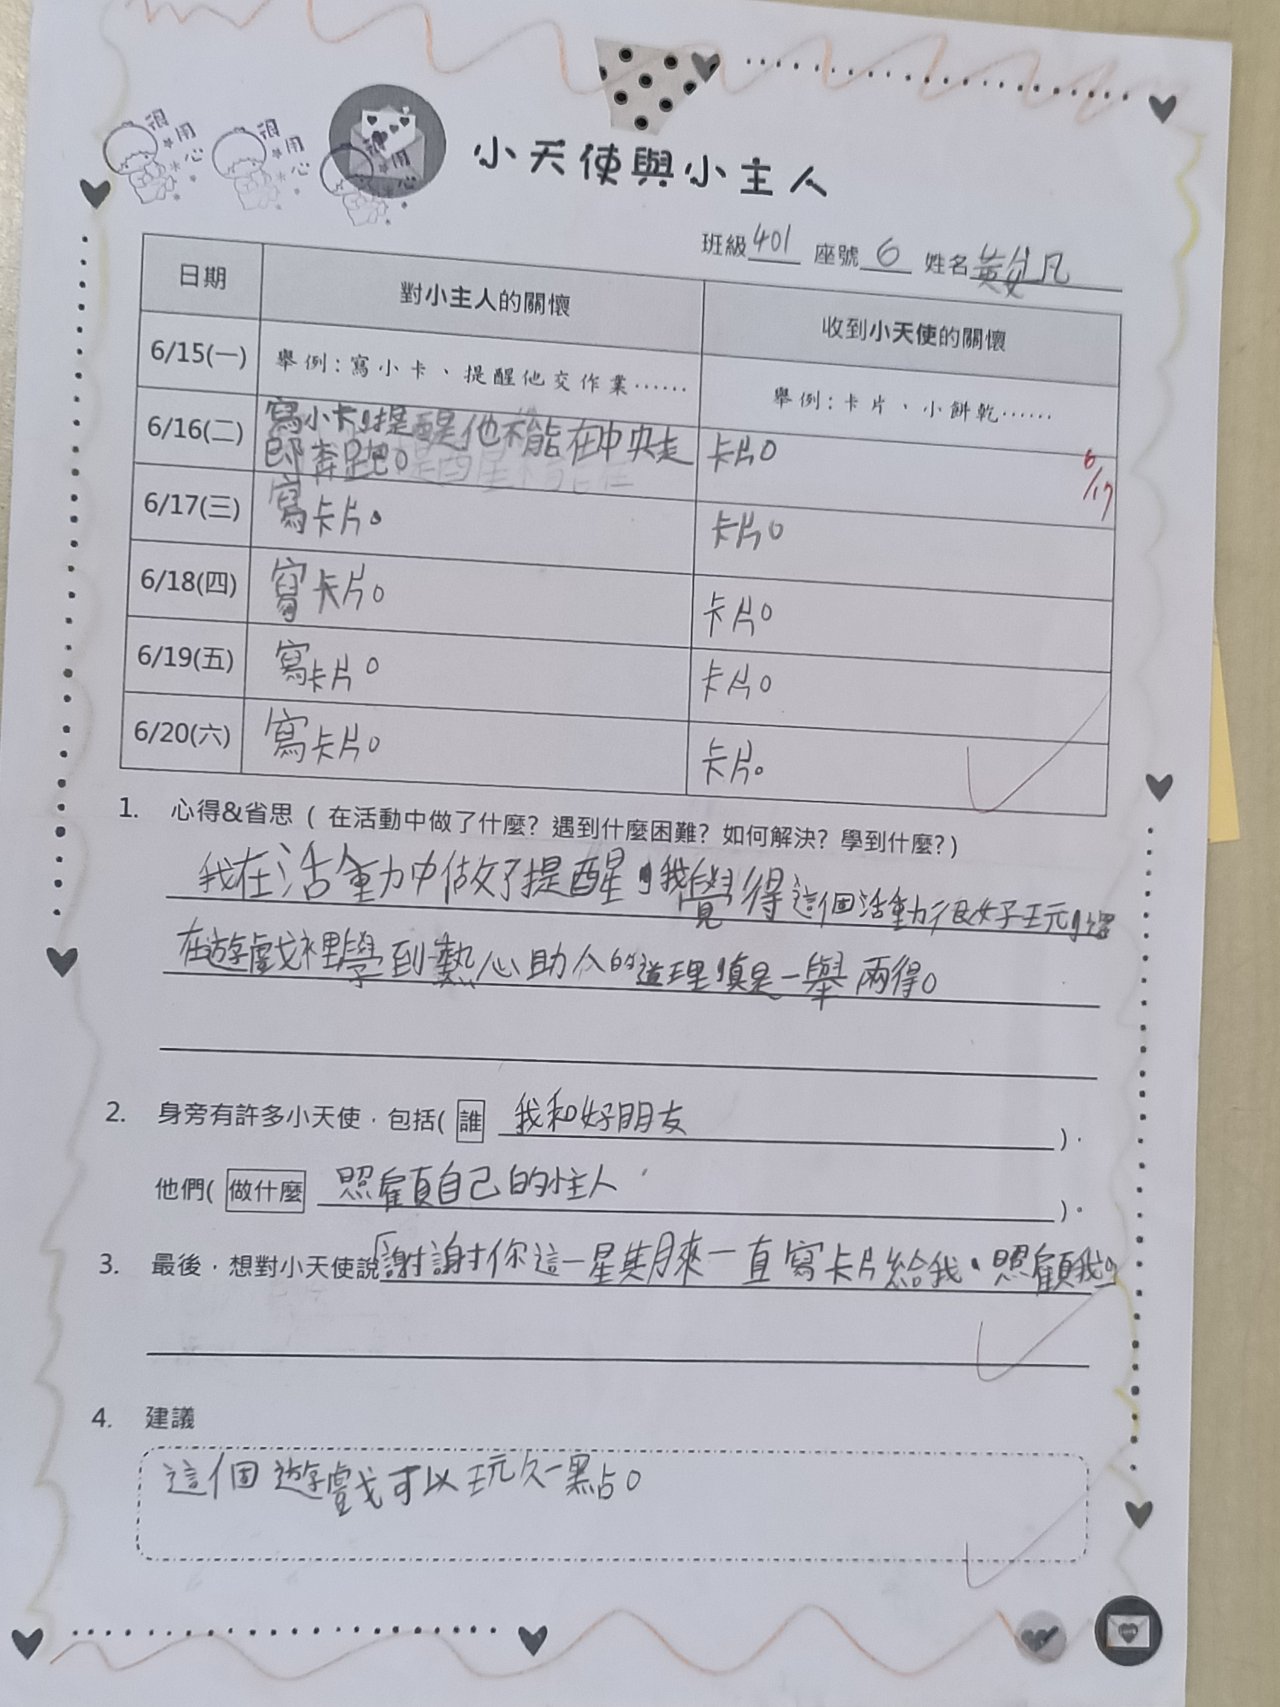 很用心
很用心
很用心
小天使與小主人
班級 401 座號 6 姓名 黃 凡
日期 對小主人的關懷 收到小天使的關懷
6/15(一) 舉例:寫小卡、提醒他交作業…… 舉例:卡片、小餅乾……
6/16(二) 寫小卡,提醒他不能在中央走 卡片。 6/17
廊奔跑。
6/17(三) 寫卡片。 卡片。
6/18(四) 寫卡片。 卡片。
6/19(五) 寫卡片。 卡片。
6/20(六) 寫卡片。 卡片。
1. 心得&省思 ( 在活動中做了什麼? 遇到什麼困難? 如何解決? 學到什麼?)
我在活動中做了提醒,我覺得這個活動很好玩,還
在遊戲裡學到熱心助人的道理,真是一舉兩得。
2. 身旁有許多小天使,包括( 誰 我和好朋友 ),
他們( 做什麼 照顧自己的小主人 )。
3. 最後,想對小天使說 謝謝你這一星期來一直寫卡片給我、照顧我。
4. 建議
這個遊戲可以玩久一點。